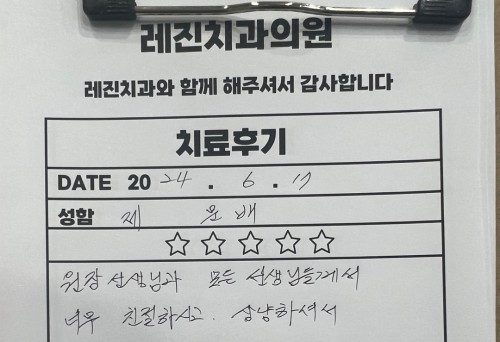 레진치과의원
레진치과와 함께 해주셔서 감사합니다
치료후기
DATE 2024 . 6 . 17
성함 제 윤배
☆ ☆ ☆ ☆ ☆
원장 선생님과 모든 선생님들께서
너무 친절하시고. 상냥하셔서